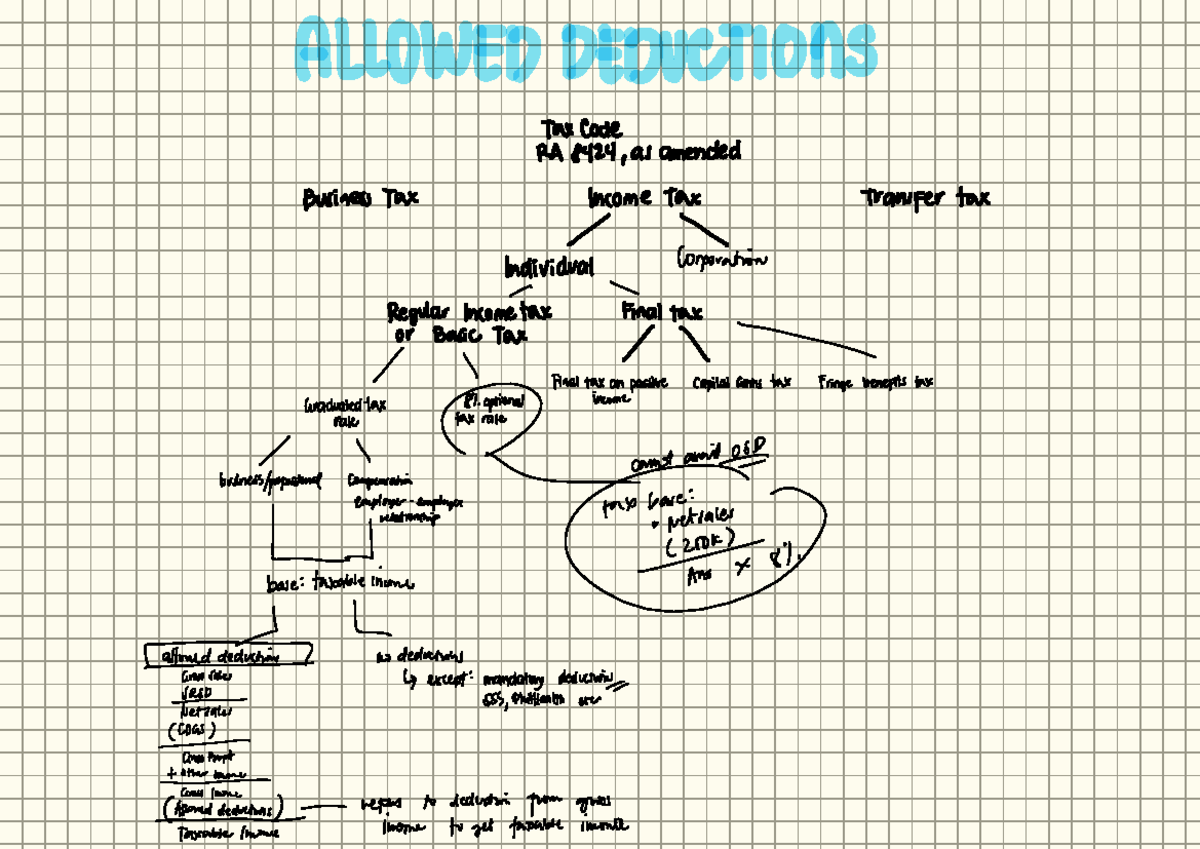 ALLOWED DEDUCTIONS
Tax Code
RA 8424, as amended
Business Tax
Income Tax
Transfer tax
Individual
Corporation
Regular Income tax
or Basic Tax
Final tax
Final tax on passive
income
Capital Gains tax
Fringe benefits tax
Graduated tax
rate
8% optional
tax rate
business/professional
Compensation
employer-employee
relationship
cannot avail OSD
tax base:
• Net sales
(250K)
Ans X 8%
base: taxable income
allowed deduction
Gross sales
SR&D
Net sales
(COGS)
Gross Profit
+ other income
Gross Income
(Allowed deductions)
Taxable Income
no deductions
↳ except: mandatory deduction
SSS, Philhealth etc
refers to deduction from gross
income to get taxable income